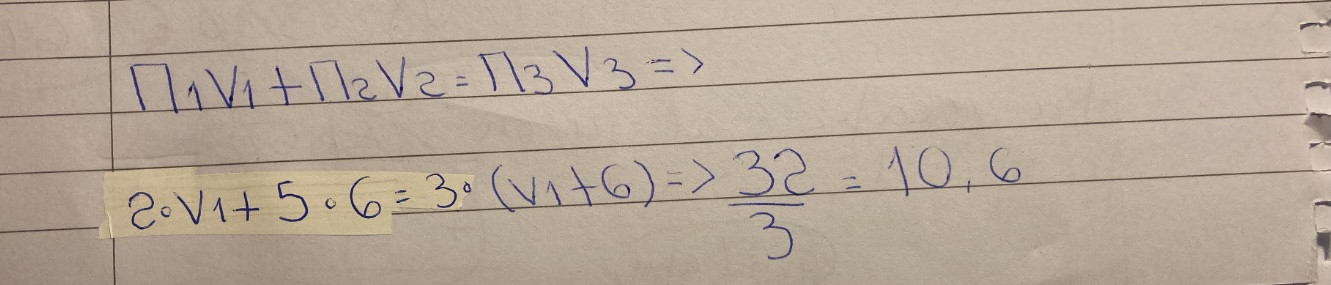 Π1V1+Π2V2=Π3V3=>
2·V1+5·6=3·(V1+6)=> 32/3 = 10,6